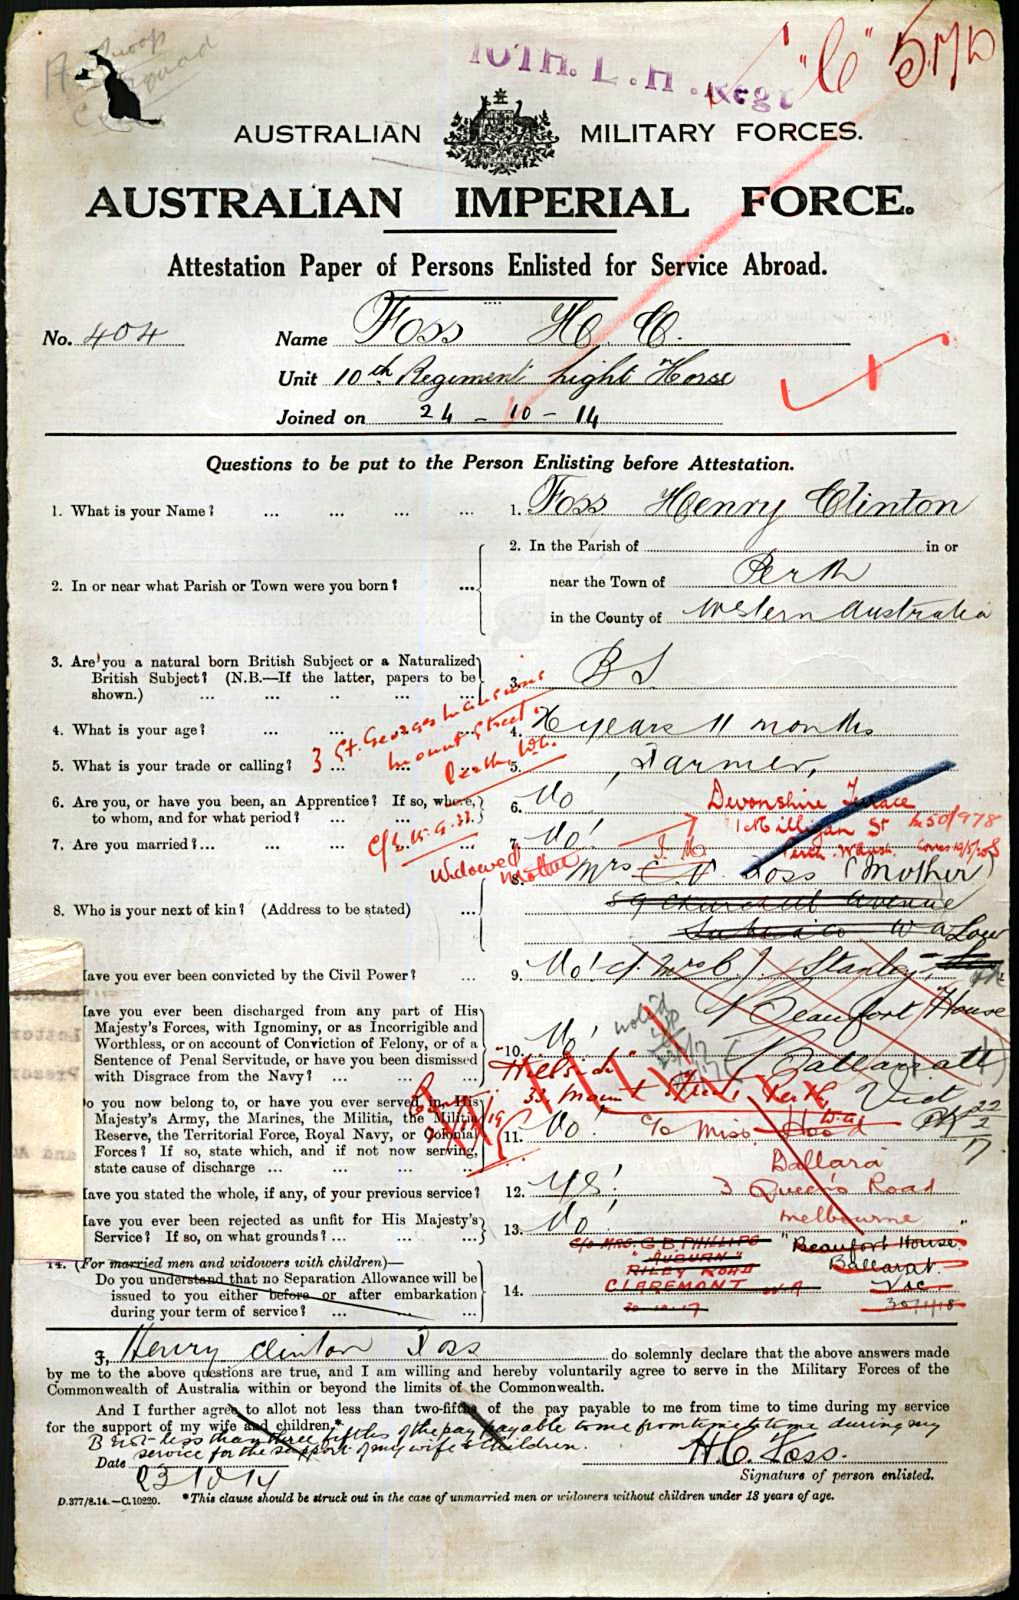 A Troop
Squad
10TH. L. H. Regt
"C" 5MD
AUSTRALIAN MILITARY FORCES.
AUSTRALIAN IMPERIAL FORCE.
Attestation Paper of Persons Enlisted for Service Abroad.
No. 404 Name Foss H. C.
Unit 10th Regiment Light Horse
Joined on 24 - 10 - 14
Questions to be put to the Person Enlisting before Attestation.
1. What is your Name? ... ... ... ... 1. Foss Henry Clinton
2. In the Parish of in or
2. In or near what Parish or Town were you born? ... near the Town of Perth
in the County of Western Australia
3. Are you a natural born British Subject or a Naturalized
British Subject? (N.B.—If the latter, papers to be 3. B S
shown.) ... ... ... ... ...
3 St. Georges Mansions
Mount Street
Perth. W.A.
4. What is your age? ... ... ... ... 4. 26 years 11 months
5. What is your trade or calling? ... ... ... 5. Farmer,
6. Are you, or have you been, an Apprentice? If so, where, 6. No
to whom, and for what period? ... ... ...
Devonshire Terrace
Milligan St M50/978
Perth. W Aust.
7. Are you married?... ... ... ... ... 7. No!
Widowed Mother
8. Mrs Foss (Mother)
8. Who is your next of kin? (Address to be stated) ... 89 Churchill Avenue
Subiaco W A
Have you ever been convicted by the Civil Power? ... 9. No! c/. Mrs C. J. Stanley,
Have you ever been discharged from any part of His
Majesty's Forces, with Ignominy, or as Incorrigible and
Worthless, or on account of Conviction of Felony, or of a
Sentence of Penal Servitude, or have you been dismissed
with Disgrace from the Navy? ... ... ... 10. No!
Beaufort House
Ballarat
Vict
"Hillside"
Mount Street, Perth,
Do you now belong to, or have you ever served in, His
Majesty's Army, the Marines, the Militia, the Militia
Reserve, the Territorial Force, Royal Navy, or Colonial
Forces? If so, state which, and if not now serving, 11. No! c/o Miss Hood
state cause of discharge ... ... ... ...
Ballara
Have you stated the whole, if any, of your previous service? 12. Yes! 3 Queen's Road
Melbourne
Have you ever been rejected as unfit for His Majesty's 13. No!
Service? If so, on what grounds?... ... ...
C/O MRS. G. B. PHILLIPS "Beaufort House"
"AUBURN" Ballarat
RILEY ROAD Vic
CLAREMONT WA 30/1/18
14. (For married men and widowers with children)—
Do you understand that no Separation Allowance will be
issued to you either before or after embarkation 14.
during your term of service? ... ... ...
I, Henry Clinton Foss do solemnly declare that the above answers made
by me to the above questions are true, and I am willing and hereby voluntarily agree to serve in the Military Forces of the
Commonwealth of Australia within or beyond the limits of the Commonwealth.
And I further agree to allot not less than two-fifths of the pay payable to me from time to time during my service
for the support of my wife and children.*
B not less than three fifths of the pay payable to me from time to time during my
service for the support of my wife & children.
Date 23 10 14 H.C. Foss.
Signature of person enlisted.
D.377/8.14.—C.10220. *This clause should be struck out in the case of unmarried men or widowers without children under 18 years of age.